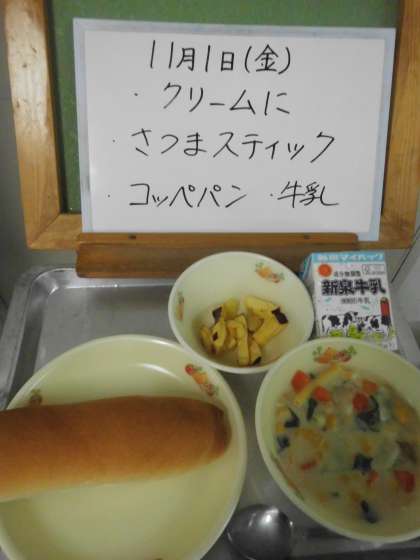 11月1日(金)
・クリームに
・さつまスティック
・コッペパン ・牛乳
成分無調整
新泉牛乳